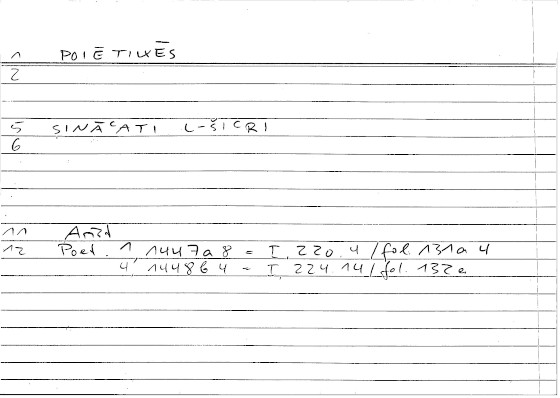 1 POIĒTIKĒS
2
5 ṢINĀʿATI L-ŠIʿRI
6
11 Arist
12 Poet. 1, 1447a8 = I, 220.4/fol. 131a4
4, 1448b4 = I, 224.14/fol. 132a